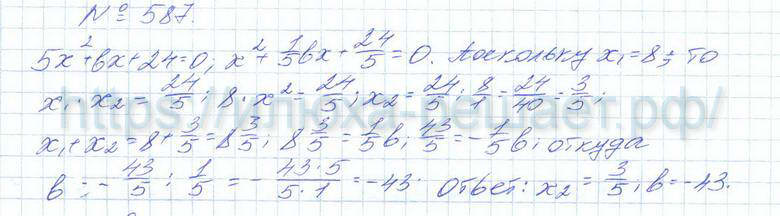 № 587.
5x²+вx+24=0; x²+1/5вx+24/5=0. Поскольку x₁=8; то
x₁·x₂=24/5; 8·x₂=24/5; x₂=24/5:8/1=24/40=3/5;
x₁+x₂=8+3/5=8 3/5; 8 3/5=1/5в; 43/5=-1/5в; откуда
в=-43/5:1/5=-43·5/5·1=-43. Ответ: x₂=3/5; в=-43.
https://илюха-решает.рф/